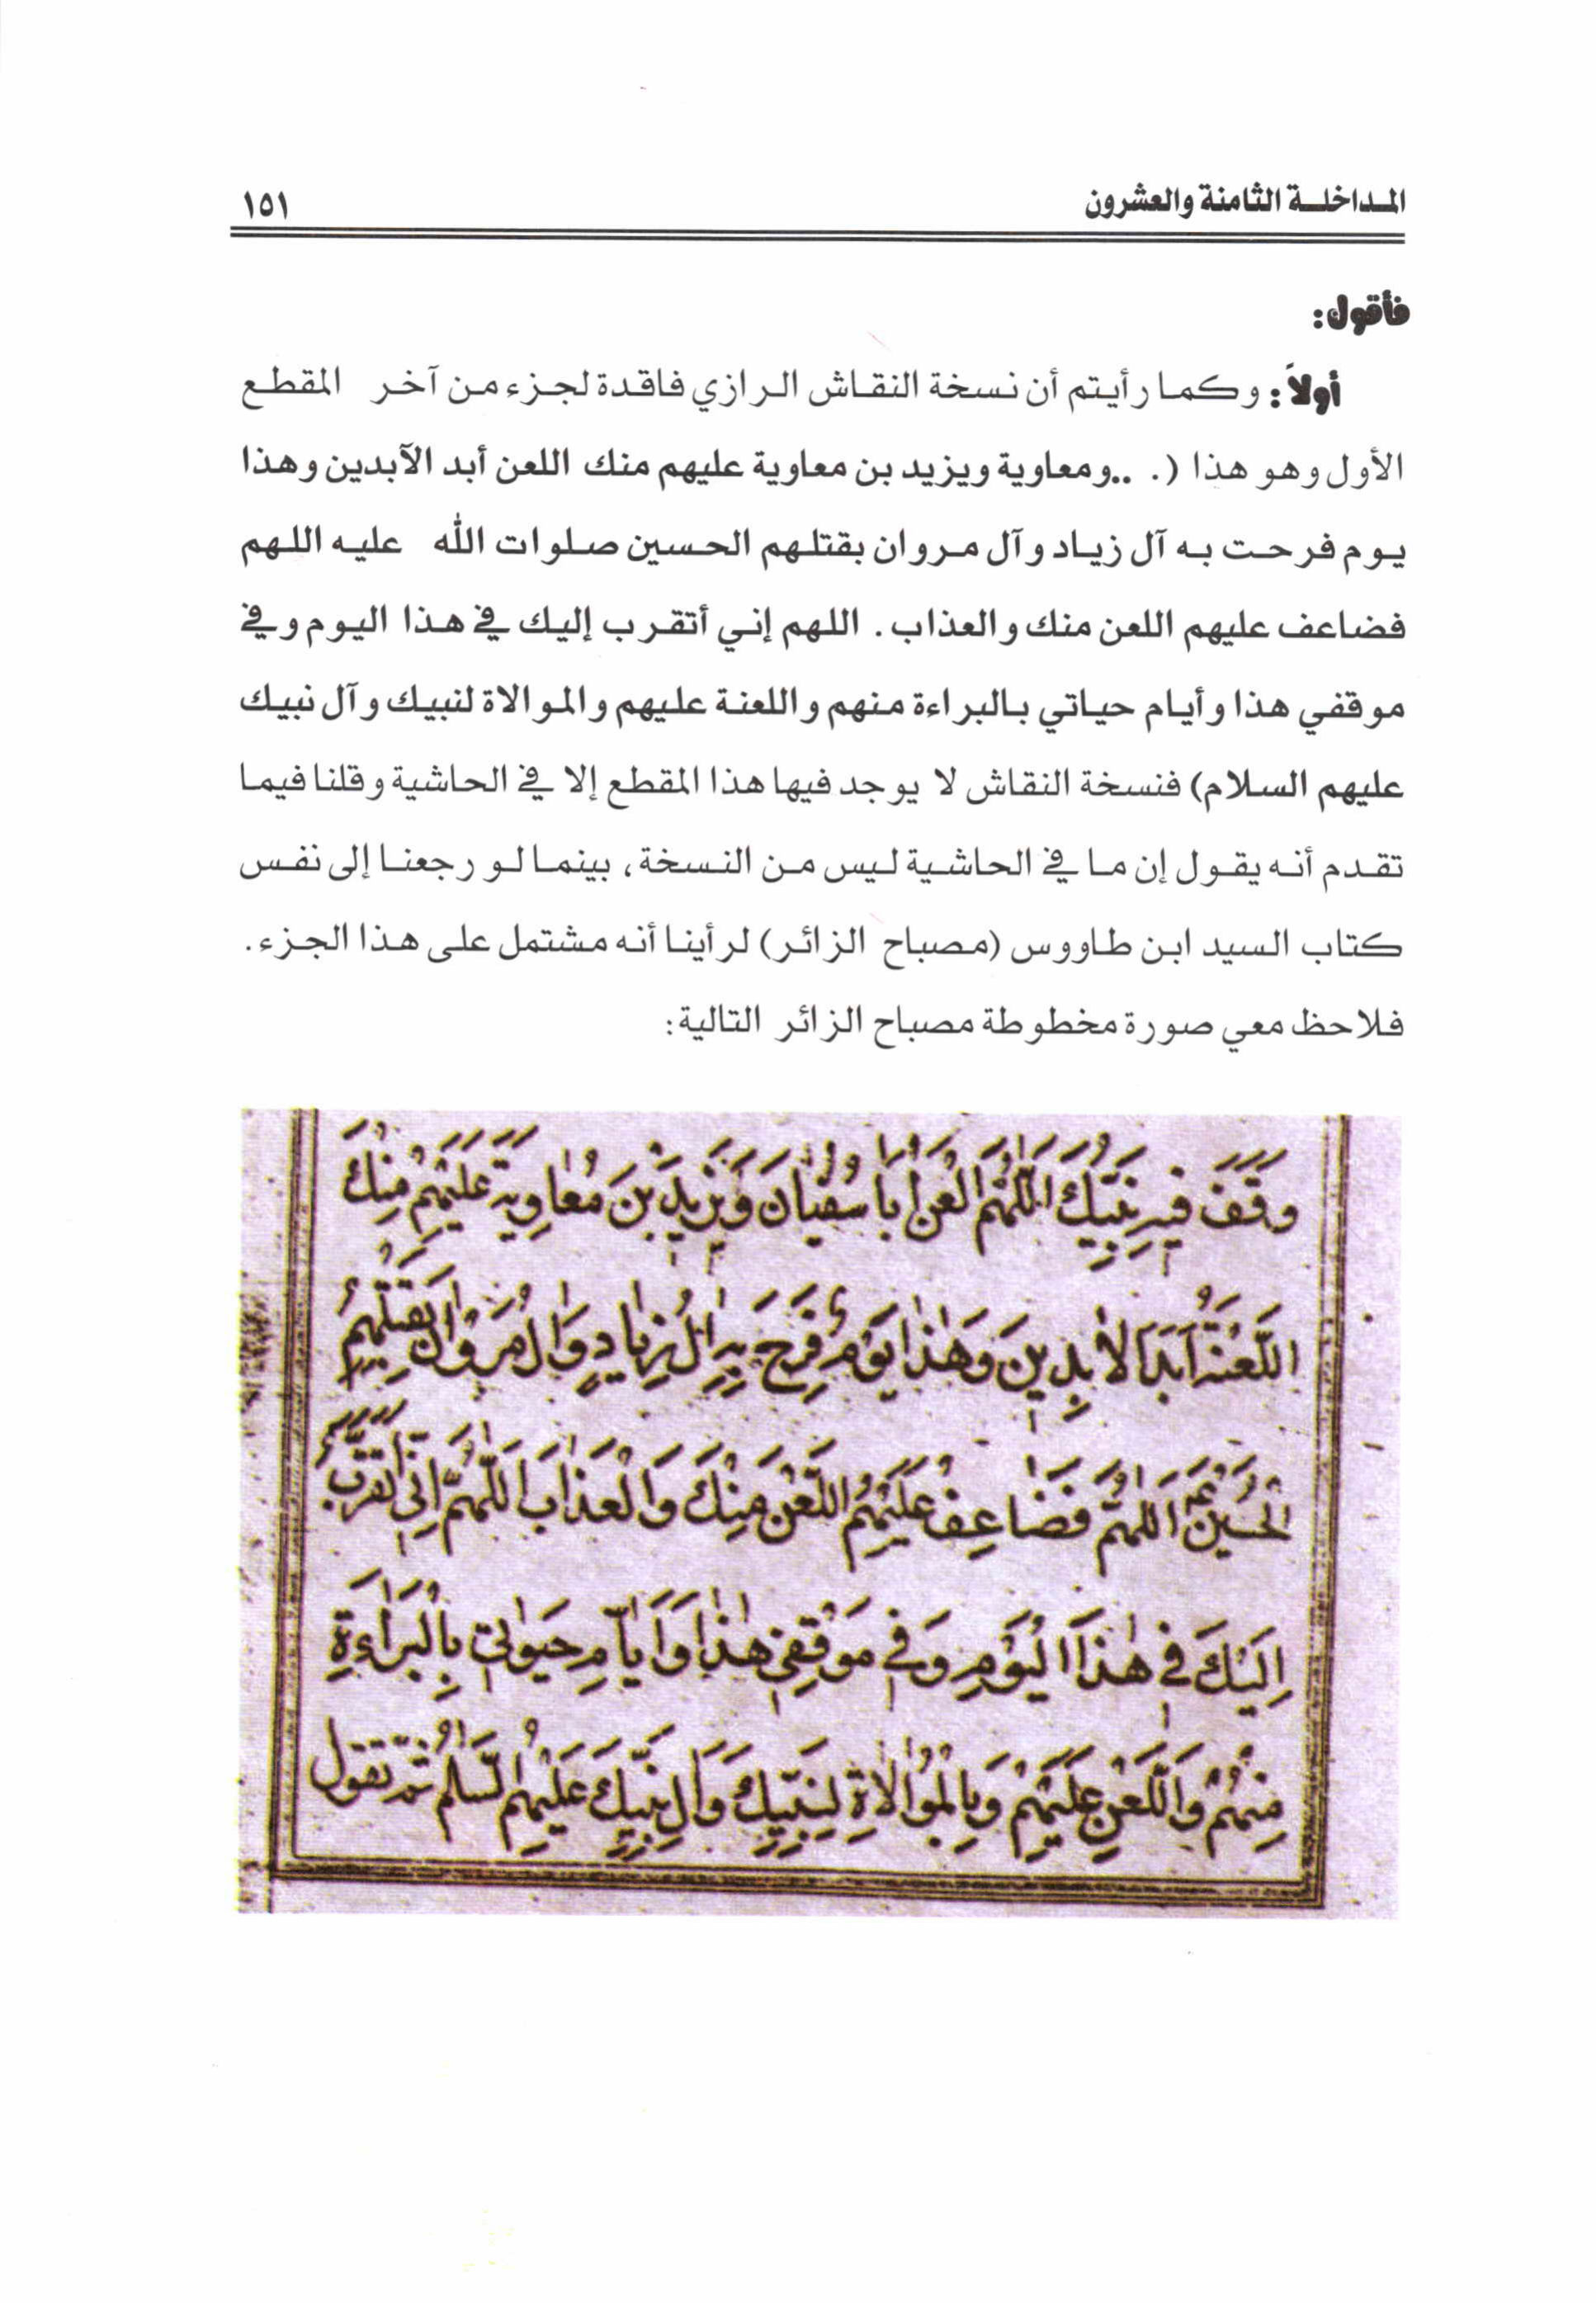 المداخلة الثامنة والعشرون
١٥١
فأقول:
أولاً: وكما رأيتم أن نسخة النقاش الرازي فاقدة لجزء من آخر المقطع
الأول وهو هذا (. ..ومعاوية ويزيد بن معاوية عليهم منك اللعن أبد الآبدين وهذا
يوم فرحت به آل زياد وآل مروان بقتلهم الحسين صلوات الله عليه اللهم
فضاعف عليهم اللعن منك والعذاب. اللهم إني أتقرب إليك في هذا اليوم وفي
موقفي هذا وأيام حياتي بالبراءة منهم واللعنة عليهم والموالاة لنبيك وآل نبيك
عليهم السلام) فنسخة النقاش لا يوجد فيها هذا المقطع إلا في الحاشية وقلنا فيما
تقدم أنه يقول إن ما في الحاشية ليس من النسخة، بينما لو رجعنا إلى نفس
كتاب السيد ابن طاووس (مصباح الزائر) لرأينا أنه مشتمل على هذا الجزء.
فلاحظ معي صورة مخطوطة مصباح الزائر التالية:
وَقَفَ فيهِ نَبِيُّكَ اَللّٰهُمَّ الْعَنْ اَبا سُفْيانَ وَيَزيدَ بْنَ مُعاوِيَةَ عَلَيْهِمْ مِنْكَ
اللَّعْنَةُ اَبَدَ الْابِدينَ وَهٰذا يَوْمٌ فَرِحَ بِهِ الُ زِيادٍ وَالُ مَرْوانَ بِقَتْلِهِمُ
الْحُسَيْنَ اَللّٰهُمَّ فَضاعِفْ عَلَيْهِمُ اللَّعْنَ مِنْكَ وَالْعَذابَ اَللّٰهُمَّ اِنّى اَتَقَرَّبُ
اِلَيْكَ فى هٰذَا الْيَوْمِ وَفى مَوْقِفى هٰذا وَاَيّامِ حَيٰوتى بِالْبَراءَةِ
مِنْهُمْ وَاللَّعْنِ عَلَيْهِمْ وَبِالْمُوالاةِ لِنَبِيِّكَ وَالِ نَبِيِّكَ عَلَيْهِمُ السَّلٰمُ ثمّ تقول